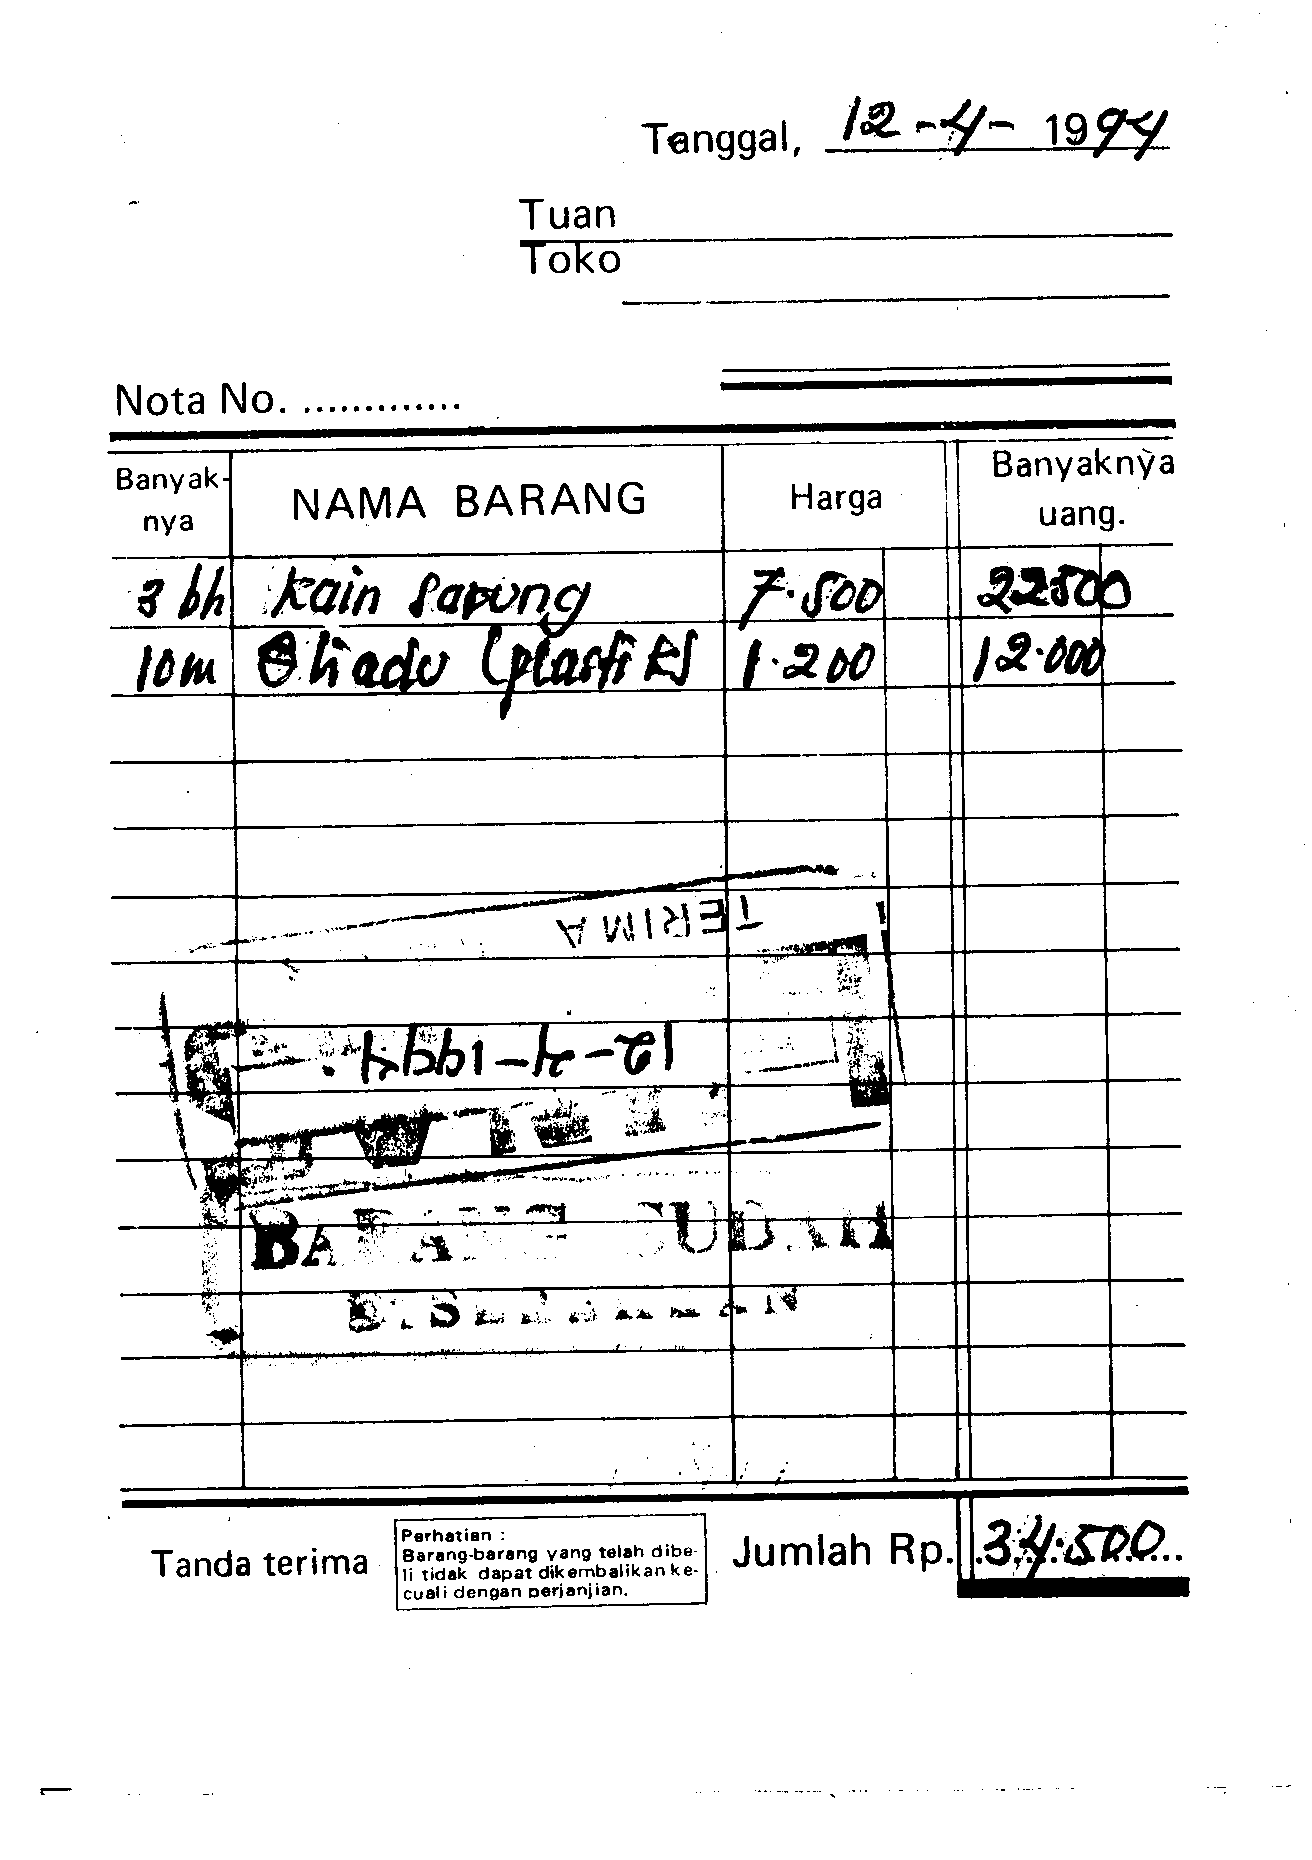 Tanggal, 12-4-1994
Tuan
Toko
Nota No. .............
Banyak-nya NAMA BARANG Harga Banyaknya uang.
3 bh Kain Sarung 7.500 22500
10m (plastik) 1.200 12.000
TERIMA
12-4-1994
BARANG SUDAH
Tanda terima
Perhatian :
Barang-barang yang telah dibe-
li tidak dapat dikembalikan ke-
cuali dengan perjanjian.
Jumlah Rp. 34.500